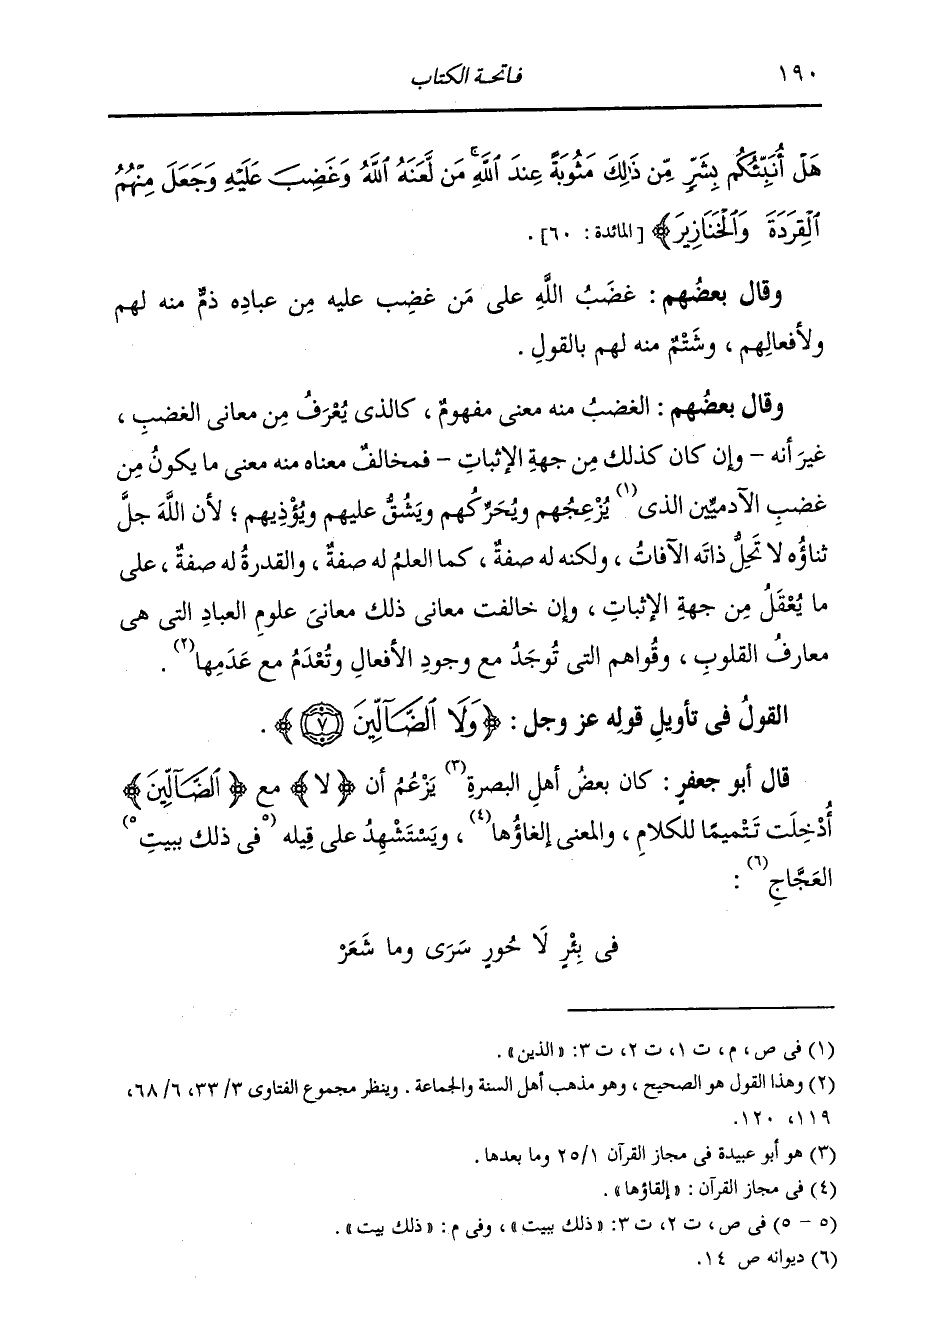 ١٩٠
فاتحة الكتاب
هَلْ أُنَبِّئُكُم بِشَرٍّ مِّن ذَٰلِكَ مَثُوبَةً عِندَ ٱللَّهِۚ مَن لَّعَنَهُ ٱللَّهُ وَغَضِبَ عَلَيْهِ وَجَعَلَ مِنْهُمُ
ٱلْقِرَدَةَ وَٱلْخَنَازِيرَ﴾ [المائدة: ٦٠].
وقال بعضُهم: غضَبُ اللَّهِ على مَن غضِب عليه مِن عبادِه ذمٌّ منه لهم
ولأفعالِهم، وشَتْمٌ منه لهم بالقولِ.
وقال بعضُهم: الغضبُ منه معنى مفهومٌ، كالذى يُعْرَفُ مِن معانى الغضبِ،
غيرَ أنه - وإن كان كذلك مِن جهةِ الإثباتِ - فمخالفٌ معناه منه معنى ما يكونُ مِن
غضبِ الآدميِّين الذى(١) يُزْعِجُهم ويُحَرِّكُهم ويَشُقُّ عليهم ويُؤْذِيهم؛ لأن اللَّهَ جلَّ
ثناؤُه لا تَحِلُّ ذاتَه الآفاتُ، ولكنه له صفةٌ، كما العلمُ له صفةٌ، والقدرةُ له صفةٌ، على
ما يُعْقَلُ مِن جهةِ الإثباتِ، وإن خالفت معانى ذلك معانىَ علومِ العبادِ التى هى
معارفُ القلوبِ، وقُواهم التى تُوجَدُ مع وجودِ الأفعالِ وتُعْدَمُ مع عَدَمِها(٢).
القولُ فى تأويلِ قولِه عز وجل: ﴿وَلَا ٱلضَّآلِّينَ ٧﴾.
قال أبو جعفرٍ: كان بعضُ أهلِ البصرةِ(٣) يَزْعُمُ أن ﴿لا﴾ مع ﴿ٱلضَّآلِّينَ﴾
أُدْخِلَت تَتْميمًا للكلامِ، والمعنى إلغاؤُها(٤)، ويَسْتَشْهِدُ على قِيلِه (٥فى ذلك ببيتِ٥)
العَجَّاجِ(٦):
فى بِئْرِ لَا حُورٍ سَرَى وما شَعَرْ
(١) فى ص، م، ت ١، ت ٢، ت ٣: «الذين».
(٢) وهذا القول هو الصحيح، وهو مذهب أهل السنة والجماعة. وينظر مجموع الفتاوى ٣/ ٣٣، ٦/ ٦٨،
١١٩، ١٢٠.
(٣) هو أبو عبيدة فى مجاز القرآن ٢٥/١ وما بعدها.
(٤) فى مجاز القرآن: «إلقاؤها».
(٥ - ٥) فى ص، ت ٢، ت ٣: «ذلك ببيت»، وفى م: «ذلك بيت».
(٦) ديوانه ص ١٤.